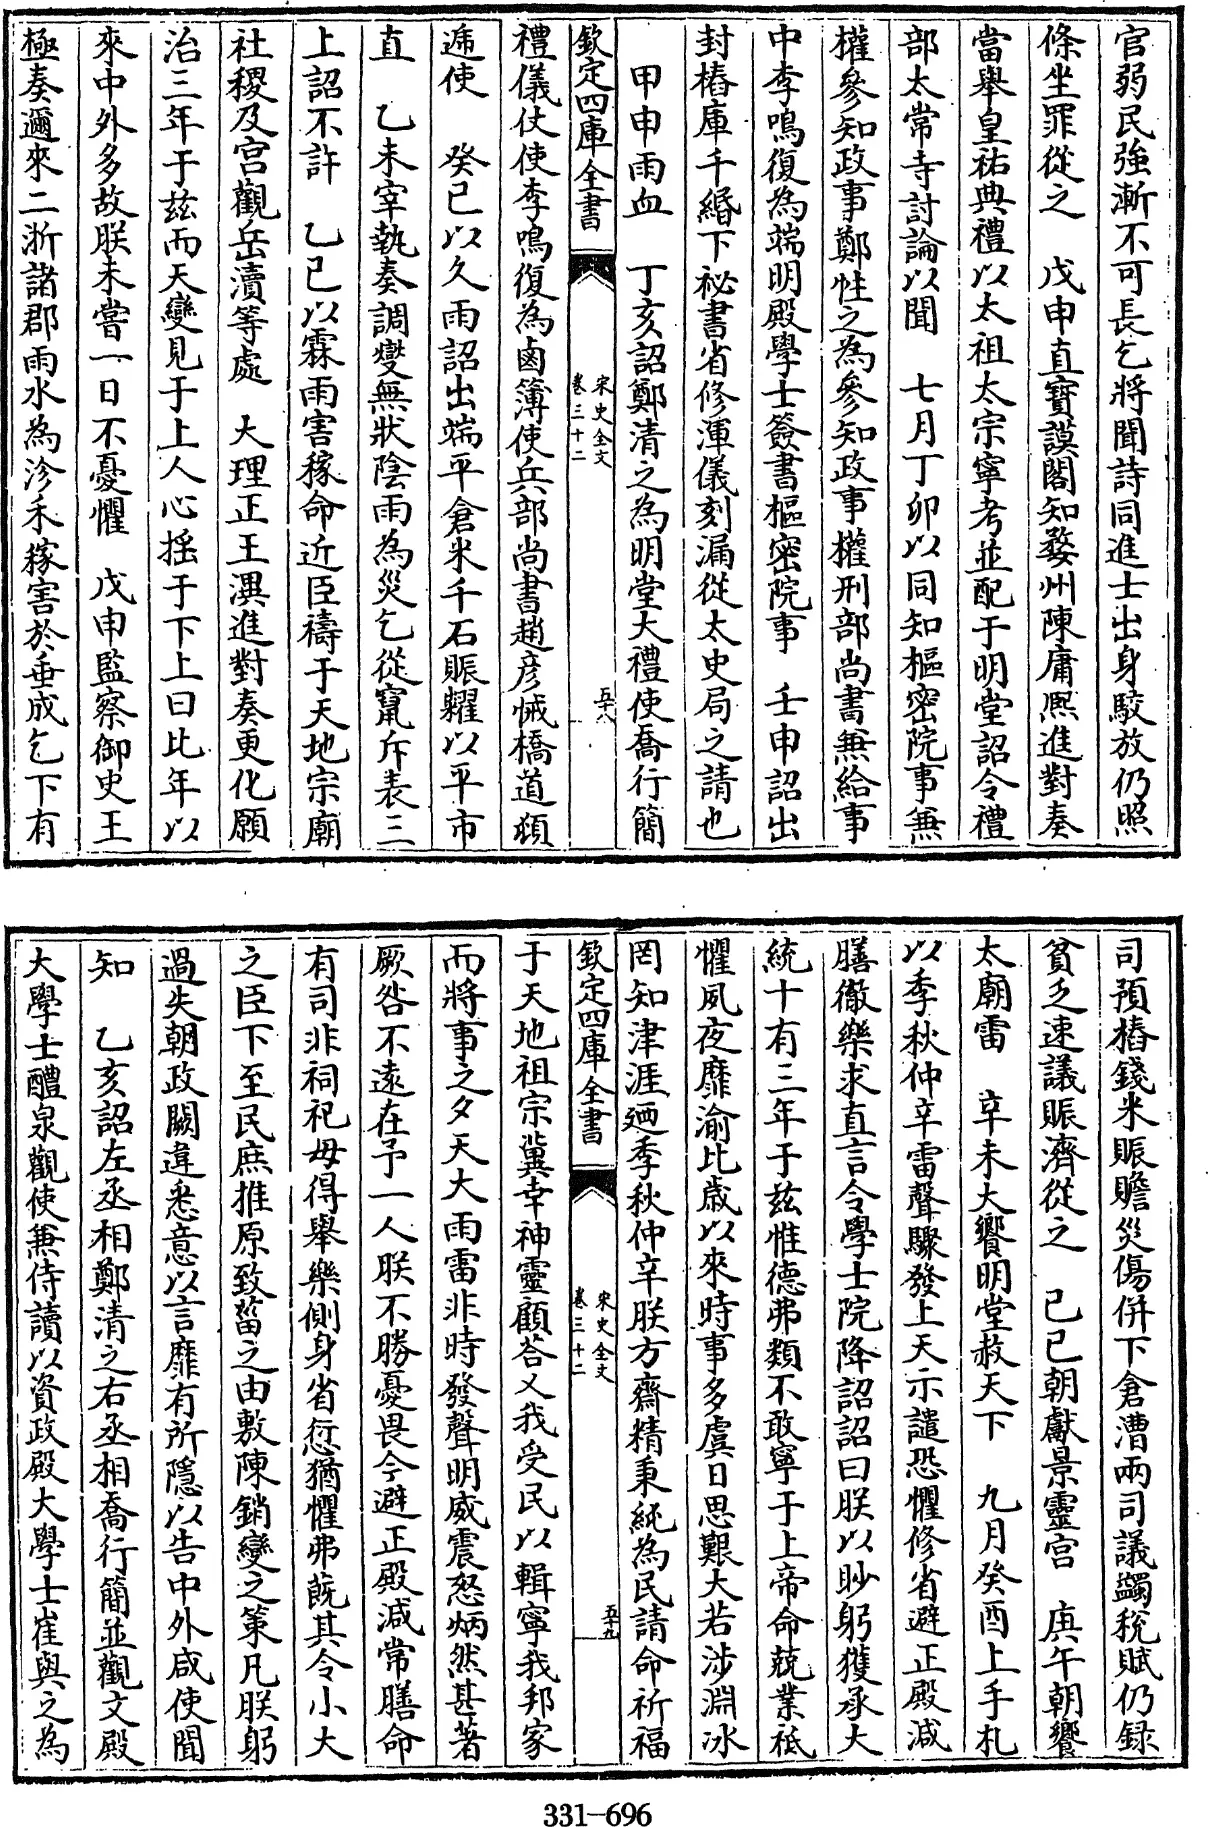 官弱民強漸不可長乞將聞詩同進士出身駮放仍照
條坐罪從之　戊申直寶謨閣知婺州陳庸熈進對奏
當舉皇祐典禮以太祖太宗寧考並配于明堂詔令禮
部太常寺討論以聞　七月丁卯以同知樞密院事無
權參知政事鄭性之為參知政事權刑部尚書兼給事
中李鳴復為端明殿學士簽書樞密院事　壬申詔出
封樁庫千緡下祕書省修渾儀刻漏從太史局之請也
甲申雨血　丁亥詔鄭清之為明堂大禮使喬行簡
欽定四庫全書
宋史全文
卷三十二
五十八
禮儀仗使李鳴復為鹵簿使兵部尚書趙彦悈橋道頓
遞使　癸巳以久雨詔出端平倉米千石賑糶以平市
直　乙未宰執奏調燮無狀陰雨為災乞從竄斥表三
上詔不許　乙巳以霖雨害稼命近臣禱于天地宗廟
社稷及宫觀岳瀆等處　大理正王淠進對奏更化願
治三年于兹而天變見于上人心揺于下上曰比年以
來中外多故朕未嘗一日不憂懼　戊申監察御史王
極奏邇來二浙諸郡雨水為沴禾稼害於垂成乞下有
司預樁錢米賑贍災傷併下倉漕兩司議蠲稅賦仍録
貧乏速議賑濟從之　己巳朝獻景靈宫　庚午朝饗
太廟雷　辛未大饗明堂赦天下　九月癸酉上手札
以季秋仲辛雷聲驟發上天示譴恐懼修省避正殿減
膳徹樂求直言令學士院降詔詔曰朕以眇躬獲承大
統十有三年于兹惟德弗類不敢寧于上帝命兢業祗
懼夙夜靡渝比歲以來時事多虞日思艱大若涉淵冰
罔知津涯廼季秋仲辛朕方齋精秉純為民請命祈福
欽定四庫全書
宋史全文
卷三十二
五十九
于天地祖宗冀幸神靈顧荅乂我受民以輯寧我邦家
而將事之夕天大雨雷非時發聲明威震怒炳然甚著
厥咎不遠在予一人朕不勝憂畏今避正殿減常膳命
有司非祠祀毋得舉樂側身省愆猶懼弗旣其令小大
之臣下至民庶推原致菑之由敷陳銷變之策凡朕躬
過失朝政闕違悉意以言靡有所隱以告中外咸使聞
知　乙亥詔左丞相鄭清之右丞相喬行簡並觀文殿
大學士醴泉觀使兼侍讀以資政殿大學士崔與之為
331-696